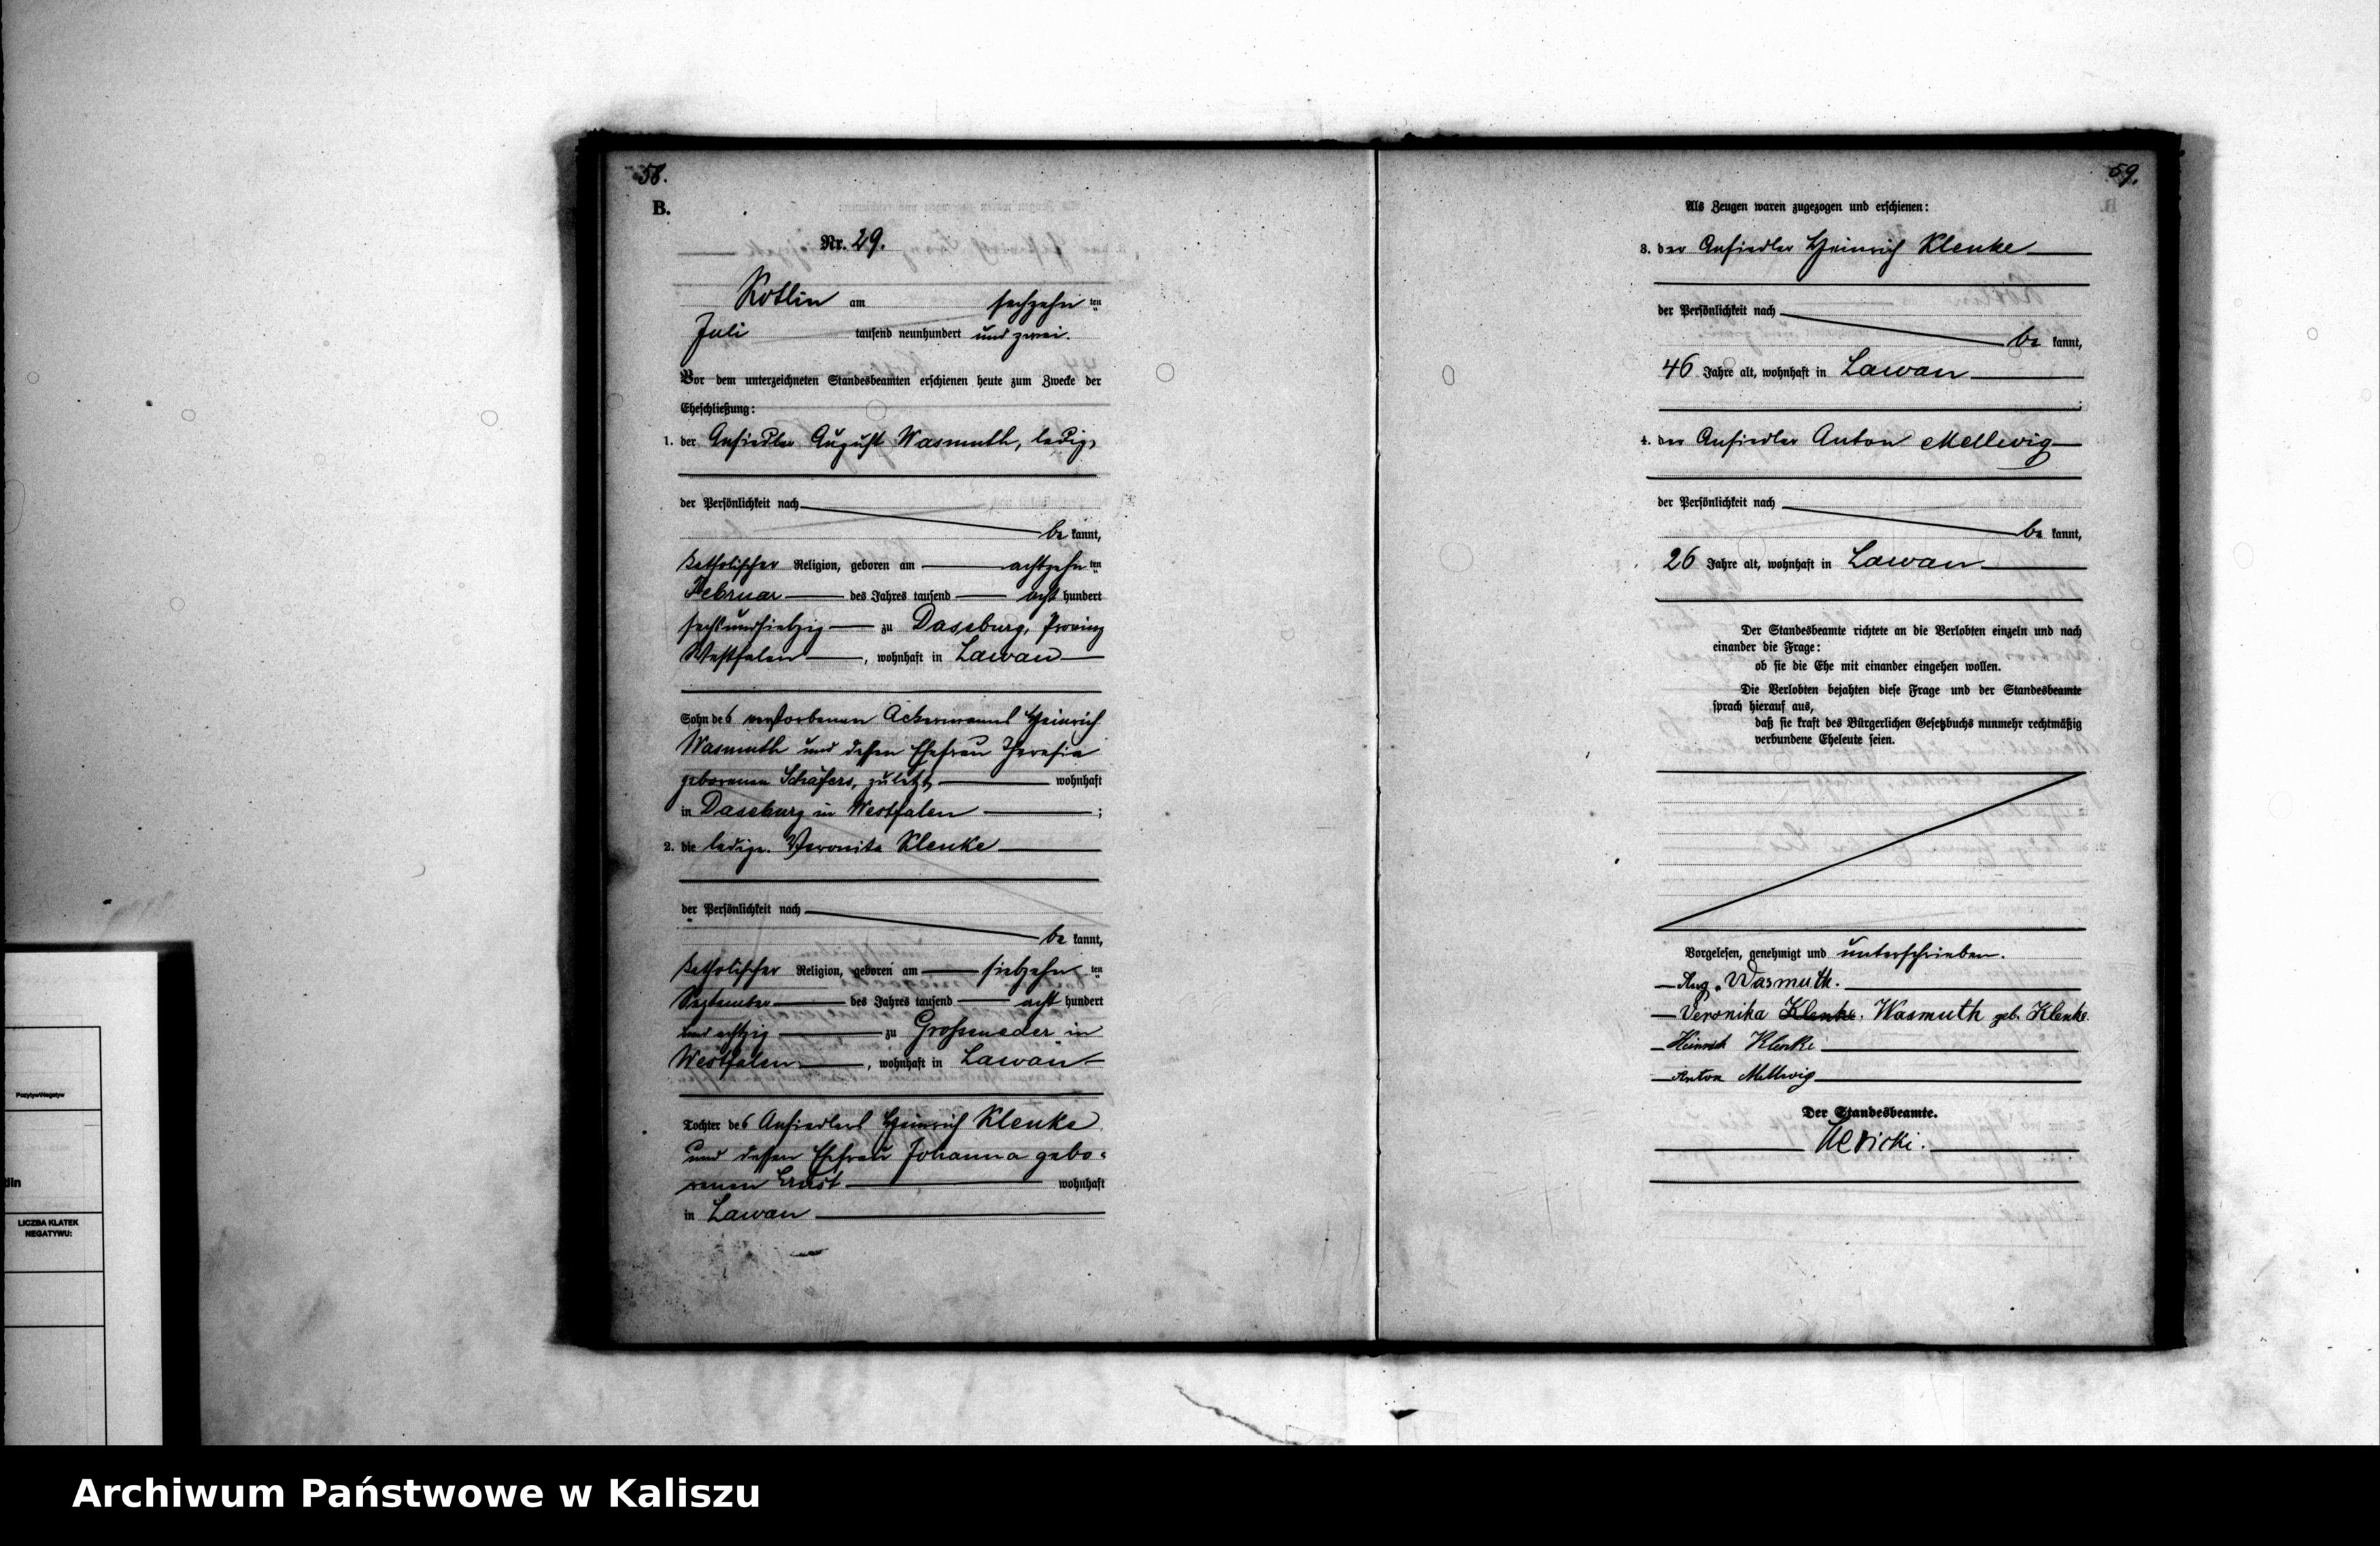 58.
B.
Nr. 29.
Kotlin am sechzehn ten
Juli tausend neunhundert und zwei.
Vor dem unterzeichneten Standesbeamten erschienen heute zum Zwecke der
Eheschließung:
1. der Ansiedler August Wasmuth, ledig,
der Persönlichkeit nach
be kannt,
katholischer Religion, geboren am achtzehn ten
Februar des Jahres tausend acht hundert
sechsundsiebzig zu Daseburg, Provinz
Westfalen, wohnhaft in Lawau
Sohn des verstorbenen Ackermanns Heinrich
Wasmuth und dessen Ehefrau Theresia
geborenen Schäfers, zuletzt wohnhaft
in Daseburg in Westfalen ;
2. die ledige Veronika Klenke
der Persönlichkeit nach
be kannt,
katholischer Religion, geboren am siebzehn ten
September des Jahres tausend acht hundert
und achtzig zu Grosseneder in
Westfalen, wohnhaft in Lawau
Tochter des Ansiedlers Heinrich Klenke
und dessen Ehefrau Johanna gebo-
renen Ernst wohnhaft
in Lawau
59.
Als Zeugen waren zugezogen und erschienen:
3. der Ansiedler Heinrich Klenke
der Persönlichkeit nach
be kannt,
46 Jahre alt, wohnhaft in Lawau
4. der Ansiedler Anton Mellwig
der Persönlichkeit nach
be kannt,
26 Jahre alt, wohnhaft in Lawau
Der Standesbeamte richtete an die Verlobten einzeln und nach
einander die Frage:
ob sie die Ehe mit einander eingehen wollen.
Die Verlobten bejahten diese Frage und der Standesbeamte
sprach hierauf aus,
daß sie kraft des Bürgerlichen Gesetzbuchs nunmehr rechtmäßig
verbundene Eheleute seien.
Vorgelesen, genehmigt und unterschrieben.
Aug. Wasmuth.
Veronika Klenke. Wasmuth geb. Klenke.
Heinrich Klenke
Anton Mellwig
Der Standesbeamte.
Pozytyw/Negatyw
LICZBA KLATEK
NEGATYWU:
Archiwum Państwowe w Kaliszu